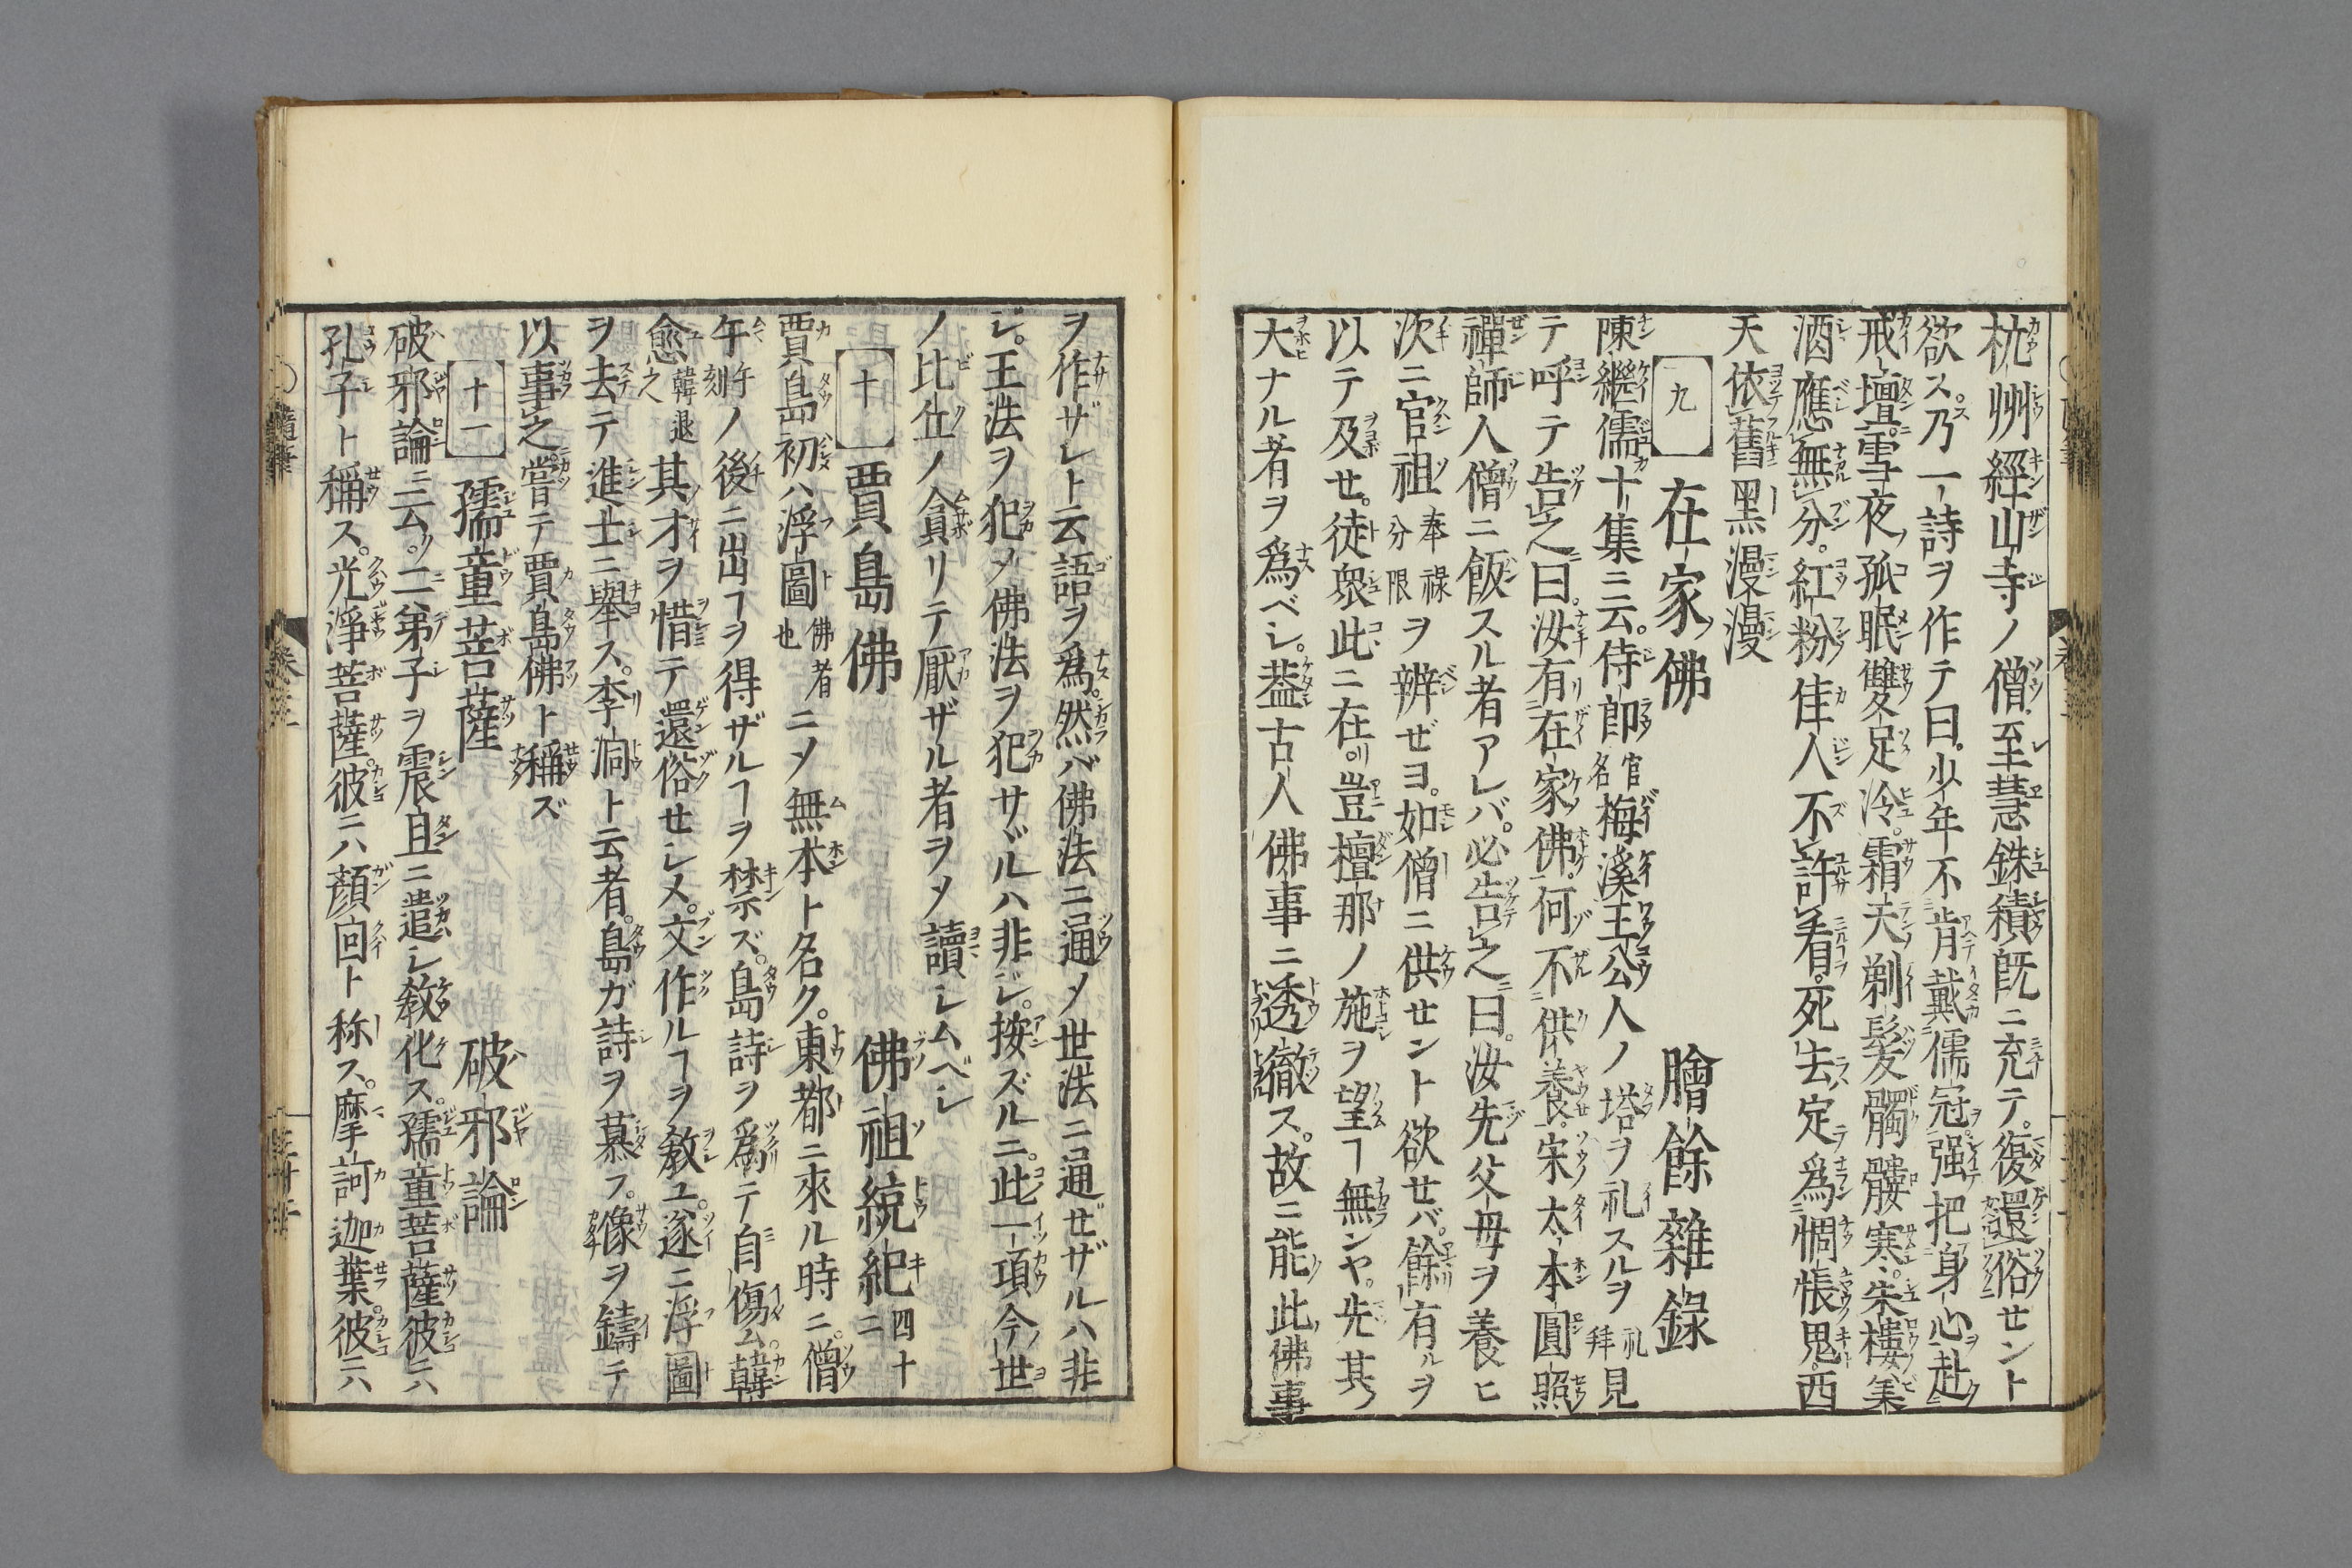 杭州經山寺ノ僧至慧銖積既ニ充テ。復還俗せント
欲ス。乃一詩ヲ作テ曰。少年不肯戴儒冠。强把身心赴
戒壇。雪夜孤眠雙足冷。霜天剃髮髑髏寒。朱樓美
酒應無分。紅粉佳人不許看。死去定爲惆悵鬼。西
天依舊黒漫漫
九 在家佛 膾餘雜録
陳繼儒十集ニ云。侍郎官名梅溪王公人ノ塔ヲ礼スルヲ礼拜見
テ呼テ告之曰。汝有在家佛。何不供養。宋太本圓照
禪師人僧ニ飯スル者アレバ。必告之曰。汝先父母ヲ養ヒ
次ニ官祖奉祿分限ヲ辨ぜヨ。如僧ニ供せント欲せバ。餘有ルヲ
以テ及せ。徒衆此ニ在リ。豈檀那ノ施ヲ望ヿ無ンヤ。先其
大ナル者ヲ爲ベシ。葢古人佛事ニ透徹ス。故ニ能此佛事
ヲ作ザレト云語ヲ爲ス。然バ佛法ニ通ノ世法ニ通ぜザルハ非
ジ。王法ヲ犯メ佛法ヲ犯サヾルハ非ジ。按ズルニ。此一項今世
ノ比丘ノ貪リテ厭ザル者ヲメ讀シムベシ
十 賈島佛 佛祖統紀四十二
賈島初ハ浮圖佛者也ニメ無本ト名ク。東都ニ來ル時ニ。僧
午午刻ノ後ニ出ヿヲ得ザルヿヲ禁ズ。島詩ヲ爲テ自傷ム。韓
愈韓退之其才ヲ惜テ還俗せシメ。文作ルヿヲ教ユ。遂ニ浮圖
ヲ去テ進士ニ舉ス。李洞ト云者。島ガ詩ヲ慕フ。像ヲ鑄テ
以事之。嘗テ賈島佛ト稱ズ
十一 孺童菩薩 破邪論
破邪論ニ云。二弟子ヲ震旦ニ遣シ教化ス。孺童菩薩彼ニハ
孔子ト稱ス。光淨菩薩。彼ニハ顔回ト称ス。摩訶迦葉。彼ニハ
隨筆
卷三